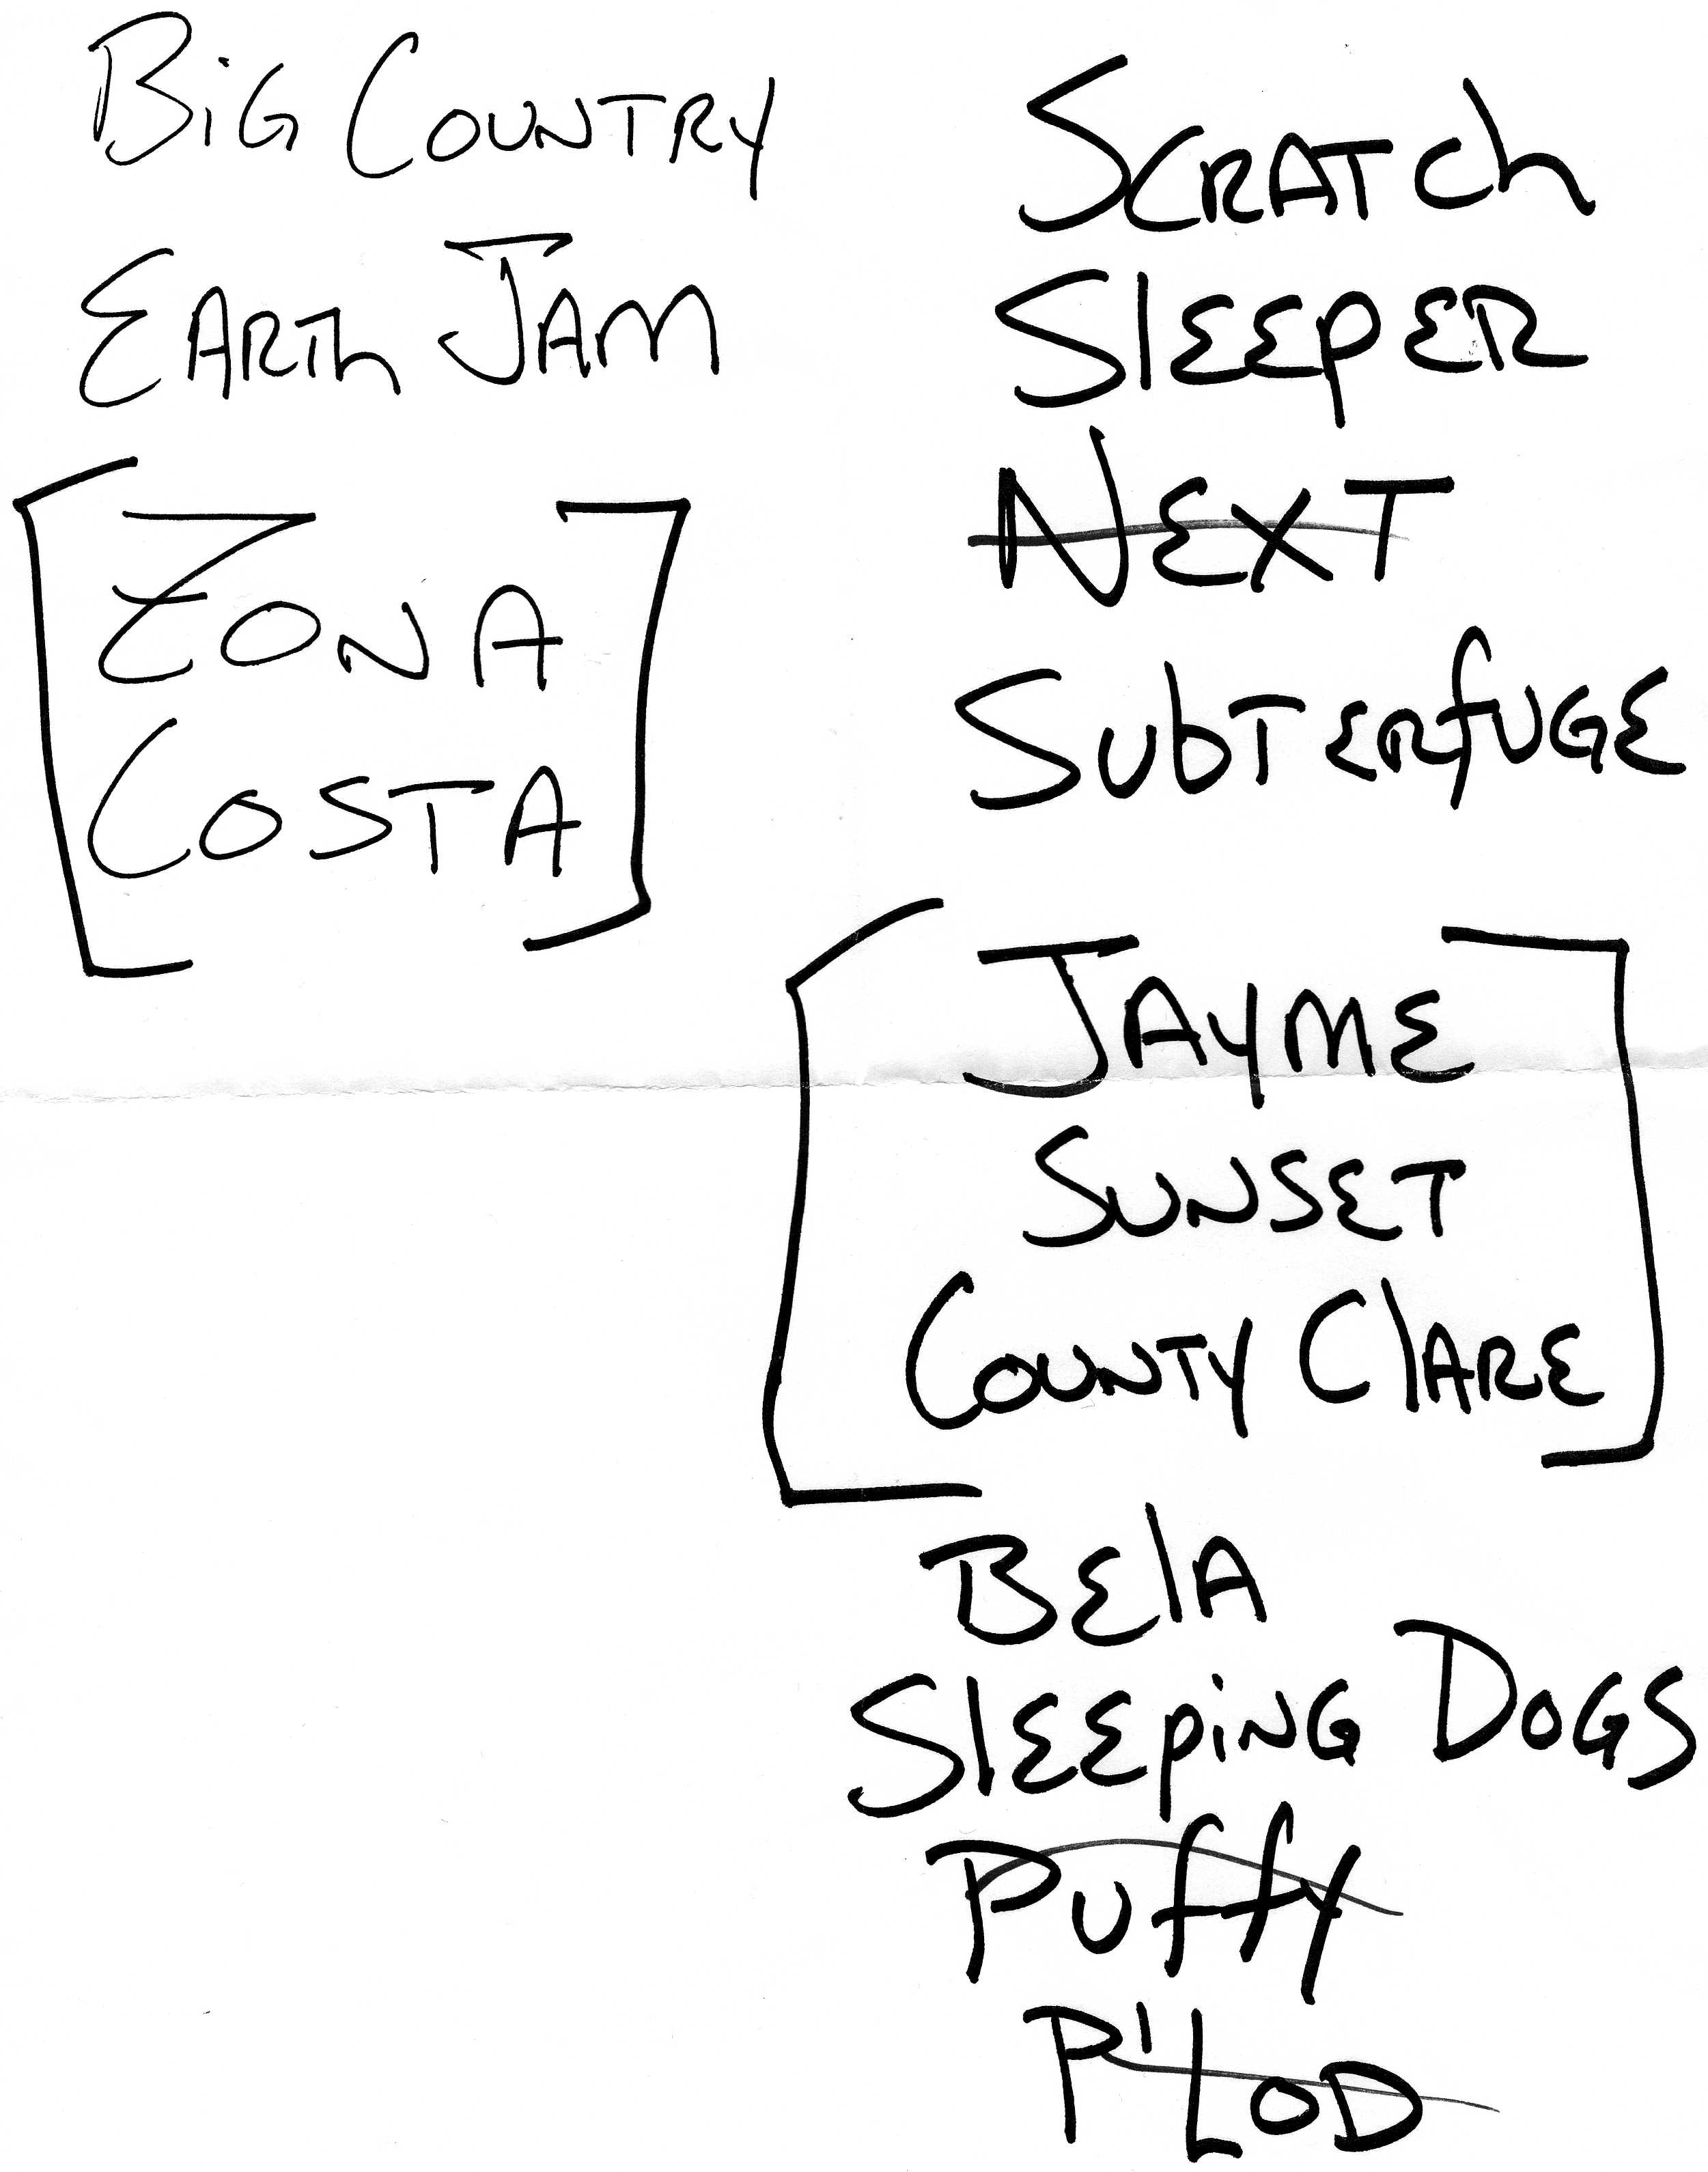 BiG COUNTRY
EARTh JAM
ZONA
COSTA
SCRATCh
SlEEpER
NEXT
SubTERfUGE
JAYME
SUNSET
COUNTY ClARE
BElA
SlEEpiNG DOGS
PUffY
P'LOD